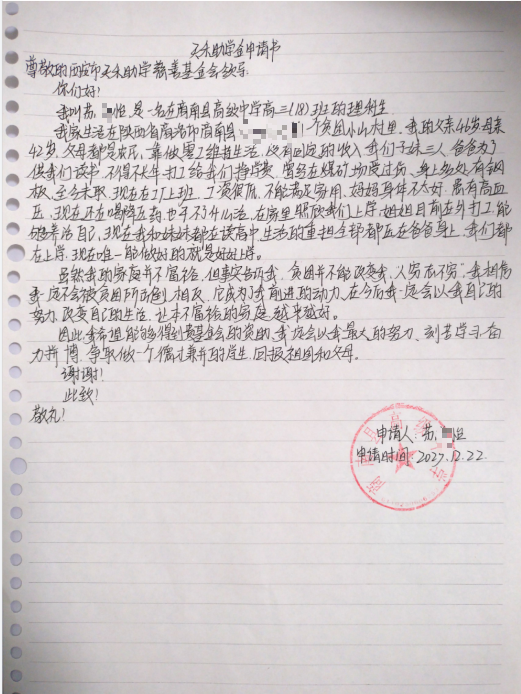 天禾助学金申请书
尊敬的西安市天禾助学慈善基金会领导:
你们好!
我叫苏 恒是一名在商南县高级中学高三(18)班的理科生
我家生活在陕西省商洛市商南县 一个贫困小山村里.我的父亲46岁母亲
42岁.父母都是农民,靠做零工维持生活,没有固定的收入我们子妹三人,爸爸为了
供我们读书,不得不长年打工给我们挣学费,曾经在煤矿场受过伤、身上多处有钢
板,至今未取,现在在工厂上班,工资很低,不能满足家用,妈妈身体不太好,患有高血
压,现在还在喝降压药,也干不了什么活,在家里照顾我们上学.姐姐目前在外打工,能
够养活自己,现在我和妹妹都在读高中生活的重担全部都压在爸爸身上.我们都
在上学.现在唯一能做好的就是好好学.
虽然我的家庭并不富裕,但事实告诉我,贫困并不能改变我,"人穷志不穷",我相信
我一定不会被贫困所击倒.相反,它成为了我前进的动力,在今后我一定会以我自己的
努力,改变自己的生活,让本不富裕的家庭越来越好.
因此,我希望能够得到贵基金会的资助,我一定会以我最大的努力,刻苦学习.奋
力拼搏,争取做一个德才兼并的学生,回报祖国和父母.
谢谢!
此致!
敬礼!
申请人:苏 恒
申请时间:2027.12.22.